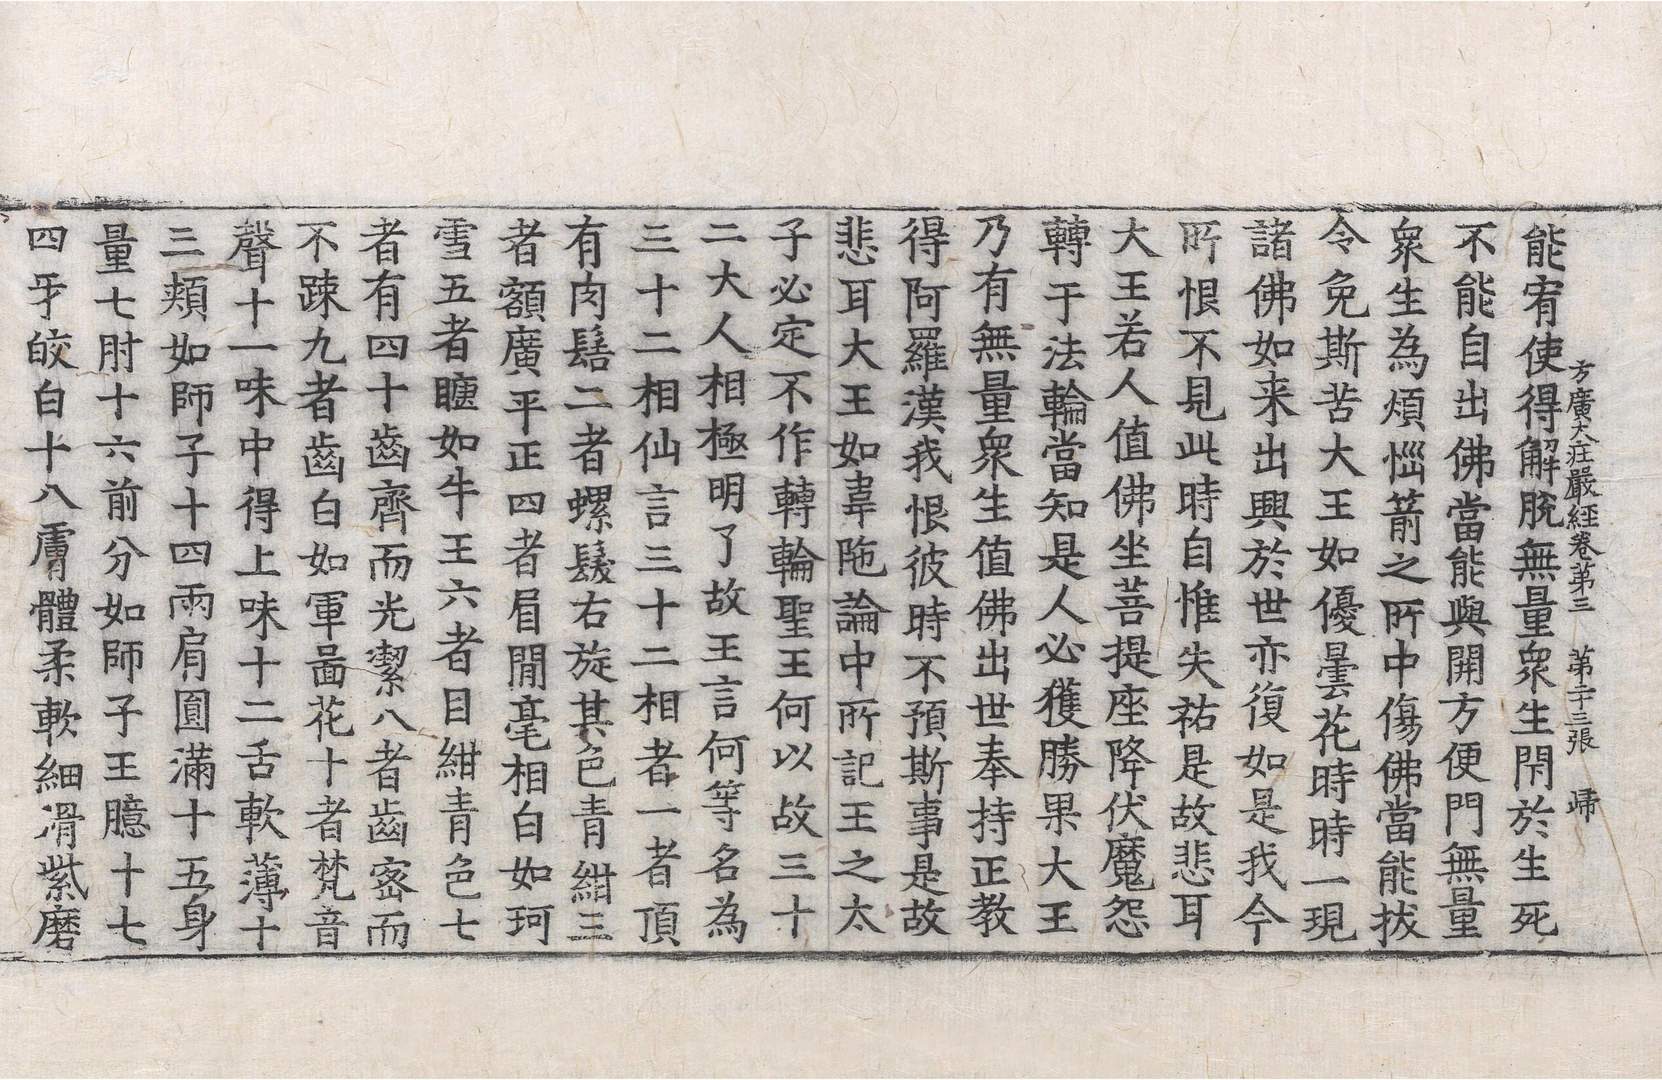 方廣大莊嚴經卷第三　第二十三張　歸
能宥使得解脫無量衆生閇於生死
不能自出佛當能與開方便門無量
衆生為煩惱箭之所中傷佛當能拔
令免斯苦大王如優曇花時時一現
諸佛如来出興於世亦復如是我今
所恨不見此時自惟失祐是故悲耳
大王若人值佛坐菩提座降伏魔怨
轉于法輪當知是人必獲勝果大王
乃有無量衆生值佛出世奉持正教
得阿羅漢我恨彼時不預斯事是故
悲耳大王如韋陁論中所記王之太
子必定不作轉輪聖王何以故三十
二大人相極明了故王言何等名為
三十二相仙言三十二相者一者頂
有肉髻二者螺髮右旋其色青紺三
者額廣平正四者眉閒毫相白如珂
雪五者睫如牛王六者目紺青色七
者有四十齒齊而光潔八者齒密而
不踈九者齒白如軍啚花十者梵音
聲十一味中得上味十二舌軟薄十
三頰如師子十四兩肩圓滿十五身
量七肘十六前分如師子王臆十七
四牙皎白十八膚體柔軟細滑紫磨